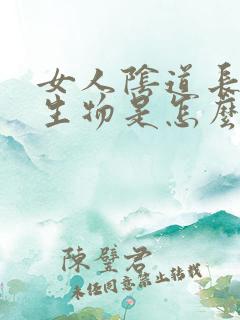 女人陰道長
生物是怎麼
陳璧君
未经同意禁止转载